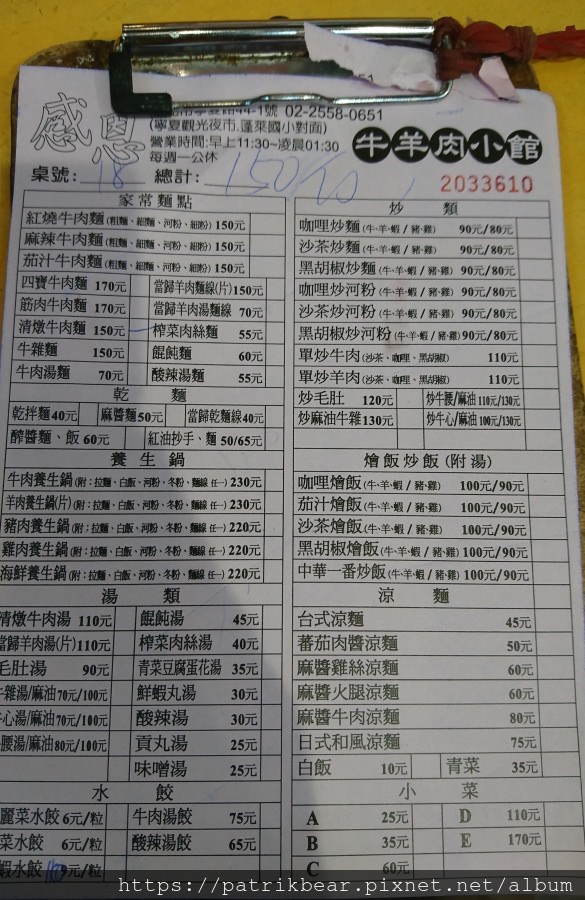 感恩
1號 02-2558-0651
(寧夏觀光夜市.蓬萊國小對面)
營業時間:早上11:30~凌晨01:30
每週一公休
牛羊肉小館
桌號: 18 總計: 150
2033610
家常麵點
紅燒牛肉麵(粗麵、細麵、河粉、細粉) 150元
麻辣牛肉麵(粗麵、細麵、河粉、細粉) 150元
茄汁牛肉麵(粗麵、細麵、河粉、細粉) 150元
四寶牛肉麵 170元 當歸羊肉麵線(片) 150元
筋肉牛肉麵 170元 當歸羊肉湯麵線 70元
清燉牛肉麵 150元 榨菜肉絲麵 55元
牛雜麵 150元 餛飩麵 60元
牛肉湯麵 70元 酸辣湯麵 55元
乾麵
乾拌麵40元 麻醬麵50元 當歸乾麵線40元
醡醬麵、飯 60元 紅油抄手、麵 50/65元
養生鍋
牛肉養生鍋(附:拉麵、白飯、河粉、冬粉、麵線 任一) 230元
羊肉養生鍋(片)(附:拉麵、白飯、河粉、冬粉、麵線 任一) 230元
豬肉養生鍋(附:拉麵、白飯、河粉、冬粉、麵線 任一) 220元
雞肉養生鍋(附:拉麵、白飯、河粉、冬粉、麵線 任一) 220元
海鮮養生鍋(附:拉麵、白飯、河粉、冬粉、麵線 任一) 220元
湯類
清燉牛肉湯 110元 餛飩湯 45元
當歸羊肉湯(片) 110元 榨菜肉絲湯 40元
毛肚湯 90元 青菜豆腐蛋花湯 35元
牛雜湯/麻油 70元/100元 鮮蝦丸湯 30元
心湯/麻油 70元/100元 酸辣湯 30元
腰湯/麻油 80元/100元 貢丸湯 25元
味噌湯 25元
水餃
麗菜水餃 6元/粒 牛肉湯餃 75元
菜水餃 6元/粒 酸辣湯餃 65元
蝦水餃 9元/粒
炒類
咖哩炒麵(牛、羊、蝦 / 豬、雞) 90元/80元
沙茶炒麵(牛、羊、蝦 / 豬、雞) 90元/80元
黑胡椒炒麵(牛、羊、蝦 / 豬、雞) 90元/80元
咖哩炒河粉(牛、羊、蝦 / 豬、雞) 90元/80元
沙茶炒河粉(牛、羊、蝦 / 豬、雞) 90元/80元
黑胡椒炒河粉(牛、羊、蝦 / 豬、雞) 90元/80元
單炒牛肉(沙茶、咖哩、黑胡椒) 110元
單炒羊肉(沙茶、咖哩、黑胡椒) 110元
炒毛肚 120元 炒牛腰/麻油 110元/130元
炒麻油牛雜 130元 炒牛心/麻油 100元/130元
燴飯炒飯(附湯)
咖哩燴飯(牛、羊、蝦 / 豬、雞) 100元/90元
茄汁燴飯(牛、羊、蝦 / 豬、雞) 100元/90元
沙茶燴飯(牛、羊、蝦 / 豬、雞) 100元/90元
黑胡椒燴飯(牛、羊、蝦 / 豬、雞) 100元/90元
中華一番炒飯(牛、羊、蝦 / 豬、雞) 100元/90元
涼麵
台式涼麵 45元
蕃茄肉醬涼麵 50元
麻醬雞絲涼麵 60元
麻醬火腿涼麵 60元
麻醬牛肉涼麵 80元
日式和風涼麵 75元
白飯 10元 青菜 35元
小菜
A 25元 D 110元
B 35元 E 170元
C 60元
https://patrikbear.pixnet.net/album